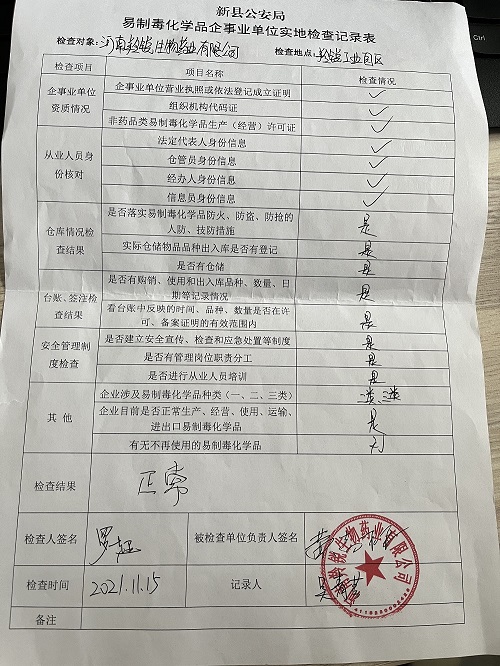 新县公安局
易制毒化学品企事业单位实地检查记录表
检查对象：河南羚锐生物药业有限公司 检查地点：羚锐工业园区
检查项目 项目名称 检查情况
企事业单位资质情况 企事业单位营业执照或依法登记成立证明 ✓
组织机构代码证 ✓
非药品类易制毒化学品生产（经营）许可证 ✓
从业人员身份核对 法定代表人身份信息 ✓
仓管员身份信息 ✓
经办人身份信息 ✓
信息员身份信息 ✓
仓库情况检查结果 是否落实易制毒化学品防火、防盗、防抢的人防、技防措施 是
实际仓储物品品种出入库是否有登记 是
是否有仓储 是
台账、签注检查结果 是否有购销、使用和出入库品种、数量、日期等记录情况 是
看台账中反映的时间、品种、数量是否在许可、备案证明的有效范围内 是
安全管理制度检查 是否建立安全宣传、检查和应急处置等制度 是
是否有管理岗位职责分工 是
是否进行从业人员培训 是
其他 企业涉及易制毒化学品种类（一、二、三类）
企业目前是否正常生产、经营、使用、运输、进出口易制毒化学品 是
有无不再使用的易制毒化学品
检查结果 正常
检查人签名 被检查单位负责人签名
检查时间 2021.11.15 记录人
备注
羚锐生物药业有限公司
Ctrl